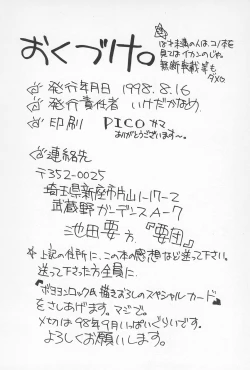 おくづけ。
18才未満の人は、コノ本を
見てはイカンのじゃ。
無断転載等も
ダメ。
発行年月日 1998.8.16
発行責任者 いけだかなめ
印刷 PICO サマ
ありがとうございます〜。
連絡先
〒352-0025
埼玉県新座市片山1-17-2
武蔵野ガーデンスA-7
池田要方『要団』
※上記の住所に、この本の感想など送って下さい。
送って下さった方全員に
『ポヨヨンロック氏描きおろしのスペシャルカード』
をさしあげます。マジで。
メ切は98年9月いっぱいぐらいです。
よろしくお願いします。